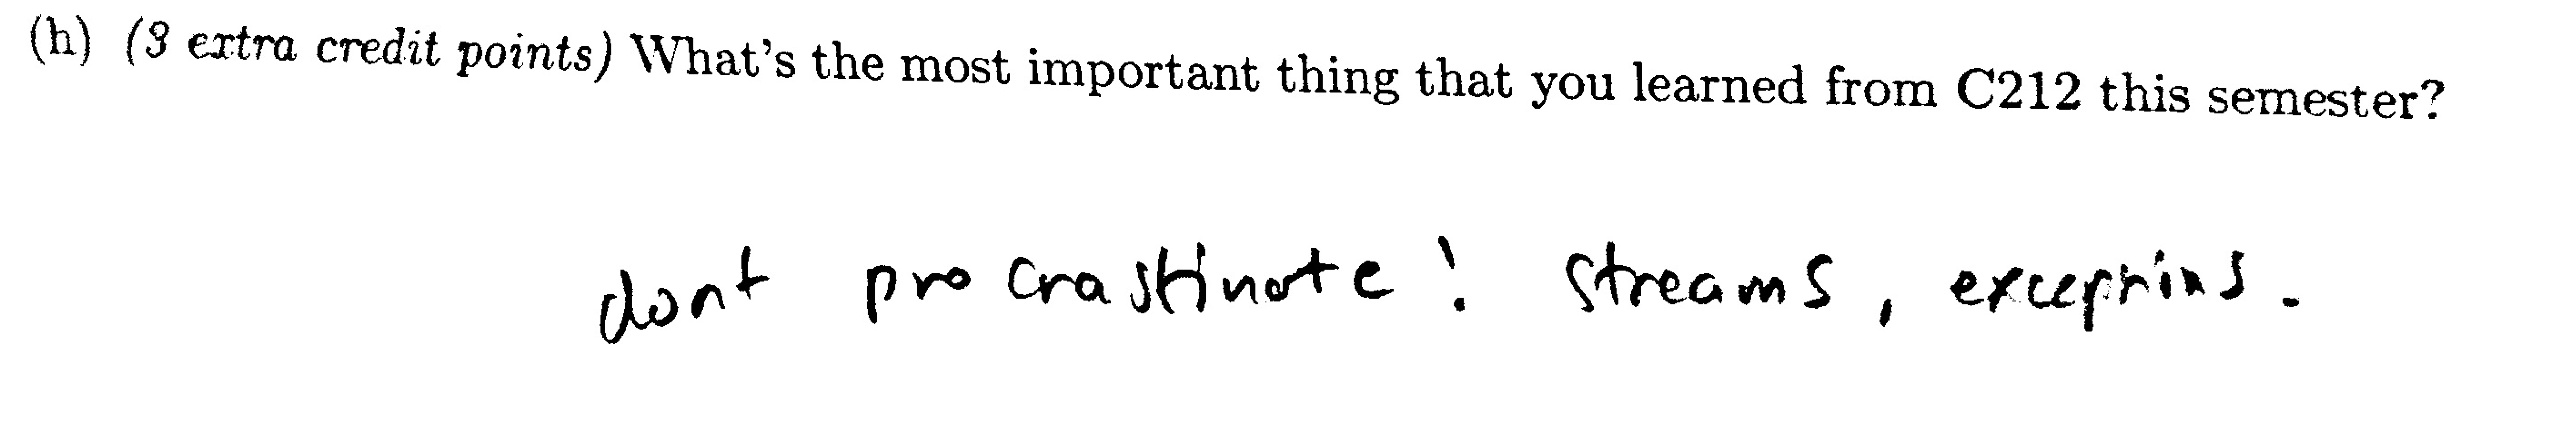 (h) (3 extra credit points) What's the most important thing that you learned from C212 this semester?
dont procrastinate! streams, exceptions.